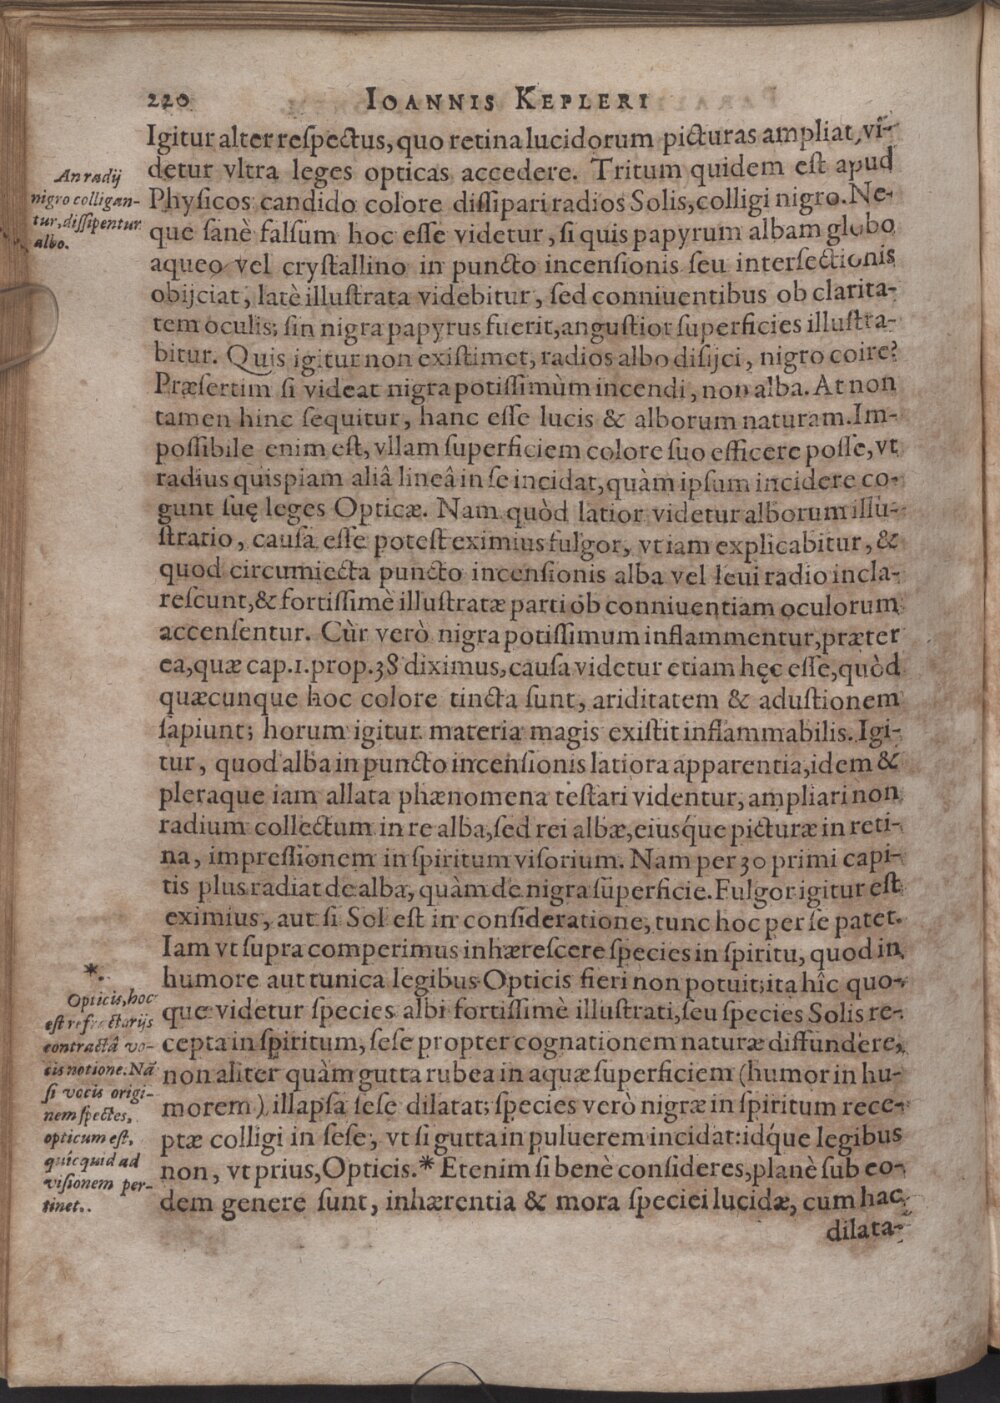 220 IOANNIS KEPLERI
Igitur alter reſpectus, quo retina lucidorum picturas ampliat, vi-
detur vltra leges opticas accedere. Tritum quidem eſt apud
Phyſicos candido colore diſſipari radios Solis, colligi nigro. Ne-
que ſanè falſum hoc eſſe videtur, ſi quis papyrum albam globo
aqueo vel cryſtallino in puncto incenſionis ſeu interſectionis
obijciat, latè illuſtrata videbitur, ſed conniuentibus ob clarita-
tem oculis; ſin nigra papyrus fuerit, anguſtior ſuperficies illuſtra-
bitur. Quis igitur non exiſtimet, radios albo diſijci, nigro coire?
Præſertim ſi videat nigra potiſſimùm incendi, non alba. At non
tamen hinc ſequitur, hanc eſſe lucis & alborum naturam. Im-
poſſibile enim eſt, vllam ſuperficiem colore ſuo efficere poſſe, vt
radius quispiam aliâ lineâ in ſe incidat, quàm ipſum incidere co-
gunt ſuę leges Opticæ. Nam quòd latior videtur alborum illu-
ſtratio, cauſa eſſe poteſt eximius fulgor, vt iam explicabitur, &
quod circumiecta puncto incenſionis alba vel leui radio incla-
reſcunt, & fortiſſimè illuſtratæ parti ob conniuentiam oculorum
accenſentur. Cùr verò nigra potiſſimum inflammentur, præter
ea, quæ cap. 1. prop. 38 diximus, cauſa videtur etiam hęc eſſe, quòd
quæcunque hoc colore tincta ſunt, ariditatem & aduſtionem
ſapiunt; horum igitur materia magis exiſtit inflammabilis. Igi-
tur, quod alba in puncto incenſionis latiora apparentia, idem &
pleraque iam allata phænomena teſtari videntur, ampliari non
radium collectum in re alba, ſed rei albæ, eiusq́ue picturæ in reti-
na, impreſſionem in ſpiritum viſorium. Nam per 30 primi capi-
tis plus radiat de alba, quàm de nigra ſuperficie. Fulgor igitur eſt
eximius, aut ſi Sol eſt in conſideratione, tunc hoc per ſe patet.
Iam vt ſupra comperimus inhæreſcere ſpecies in ſpiritu, quod in
humore aut tunica legibus Opticis fieri non potuit; ita hîc quo-
que videtur ſpecies albi fortiſſimè illuſtrati, ſeu ſpecies Solis re-
cepta in ſpiritum, ſeſe propter cognationem naturæ diffundere,
non aliter quàm gutta rubea in aquæ ſuperficiem (humor in hu-
morem) illapſa ſeſe dilatat; ſpecies verò nigræ in ſpiritum rece-
ptæ colligi in ſeſe, vt ſi gutta in puluerem incidat: idq́ue legibus
non, vt prius, Opticis.* Etenim ſi benè conſideres, planè ſub eo-
dem genere ſunt, inhærentia & mora ſpeciei lucidæ, cum hac
dilata-
An radij
nigro colligan-
tur, diſſipentur
albo.
*.
Opticis, hoc
eſt refractarijs
contractâ vo-
cis notione. Nã
ſi vocis origi-
nem ſpectes,
opticum eſt,
quicquid ad
viſionem per-
tinet.